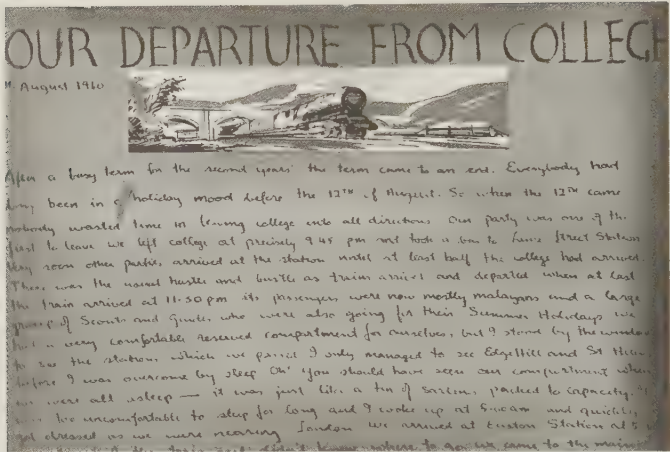 OUR DEPARTURE FROM COLLEGE
August 1960
After a busy term for the second years' the term came to an end. Everybody had
been in a holiday mood before the 12TH of August. So when the 12TH came
nobody wasted time in leaving college into all directions Our party was one of the
to leave we left college at precisely 9.45 pm and took a bus to Lime Street Station
Very soon other parties arrived at the station until at least half the college had arrived.
There was the usual hustle and bustle as trains arrived and departed when at last
the train arrived at 11.50 pm its passengers were now mostly malayans and a large
group of Scouts and Guides who were also going for their Summer Holidays We
had a very comfortable reserved compartment for ourselves, but I stood by the window
to see the stations which we passed I only managed to see Edgehill and St
before I was overcome by sleep Oh! you should have seen our compartment when
we were all asleep — it was just like a tin of Sardines packed to capacity.
too uncomfortable to sleep for long and I woke up at 5.00am and quickly
got dressed as we were nearing London We arrived at Euston Station at 5
didn't know where to go we came to the